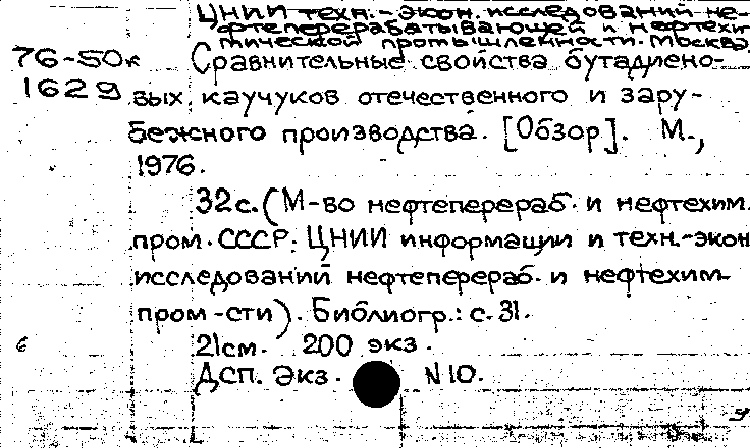 ЦНИИ техн.-экон. исследований не-
фтеперерабатывающей и нефтехи
мической промышленности. Москва
76-50к Сравнительные свойства бутадиено-
1629 вых каучуков отечественного и зару-
бежного производства. [Обзор]. М.,
1976.
32с. (М-во нефтеперераб. и нефтехим.
пром. СССР. ЦНИИ информации и техн.-экон
исследований нефтеперераб. и нефтехим.
пром-сти). Библиогр.: с. 31.
6 21см. 200 экз.
ДСП. Экз. N10.